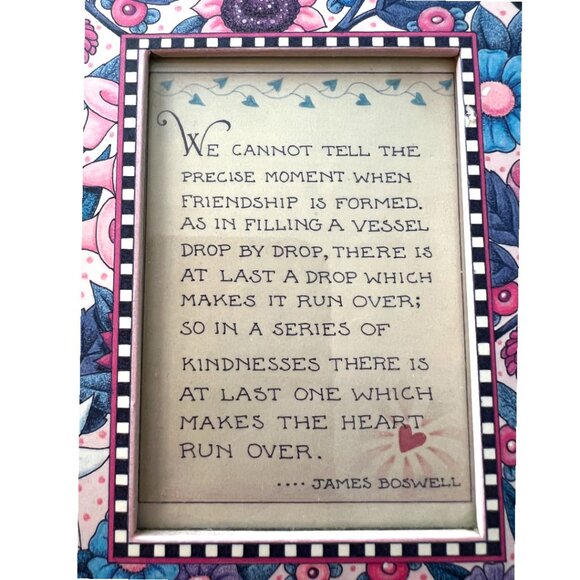 WE CANNOT TELL THE
PRECISE MOMENT WHEN
FRIENDSHIP IS FORMED.
AS IN FILLING A VESSEL
DROP BY DROP, THERE IS
AT LAST A DROP WHICH
MAKES IT RUN OVER;
SO IN A SERIES OF
KINDNESSES THERE IS
AT LAST ONE WHICH
MAKES THE HEART
RUN OVER.
.... JAMES BOSWELL